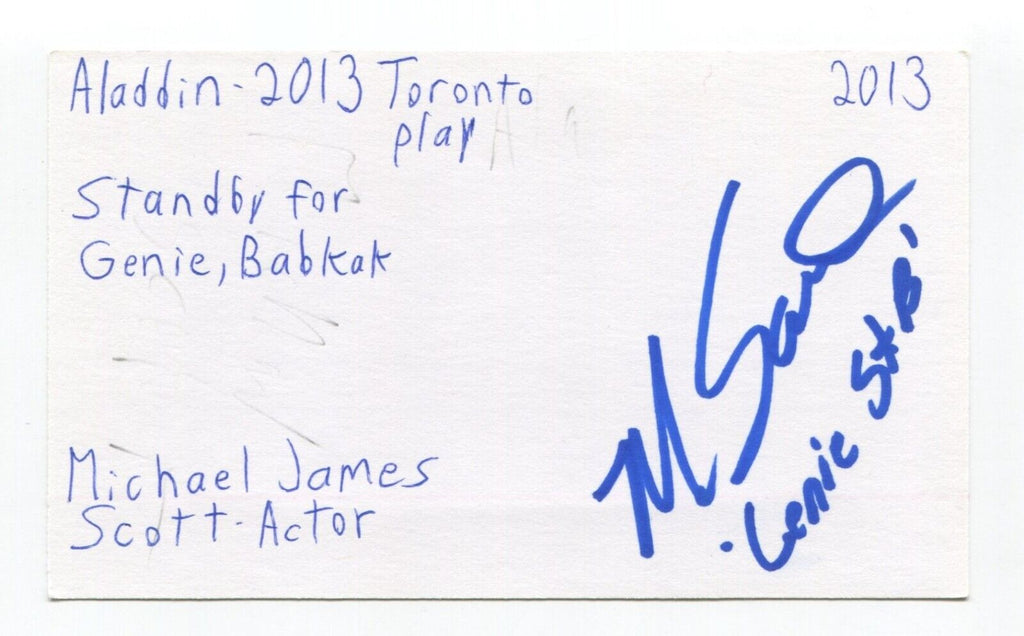 Aladdin - 2013 Toronto play
2013
Standby for
Genie, Babkak
Michael James
Scott - Actor
M Scott
Genie St. B.